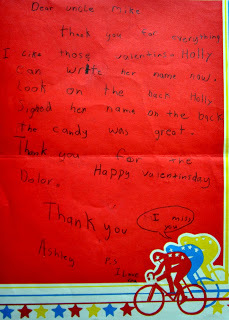 Dear uncle Mike
Thank you for everything
I like those valentins Holly
can write her name now.
Look on the back Holly
signed her name on the back
The candy was great.
Thank you fair the
Dolars Happy valentinsday
Thank you
I miss you
Ashley P.S.
I Love